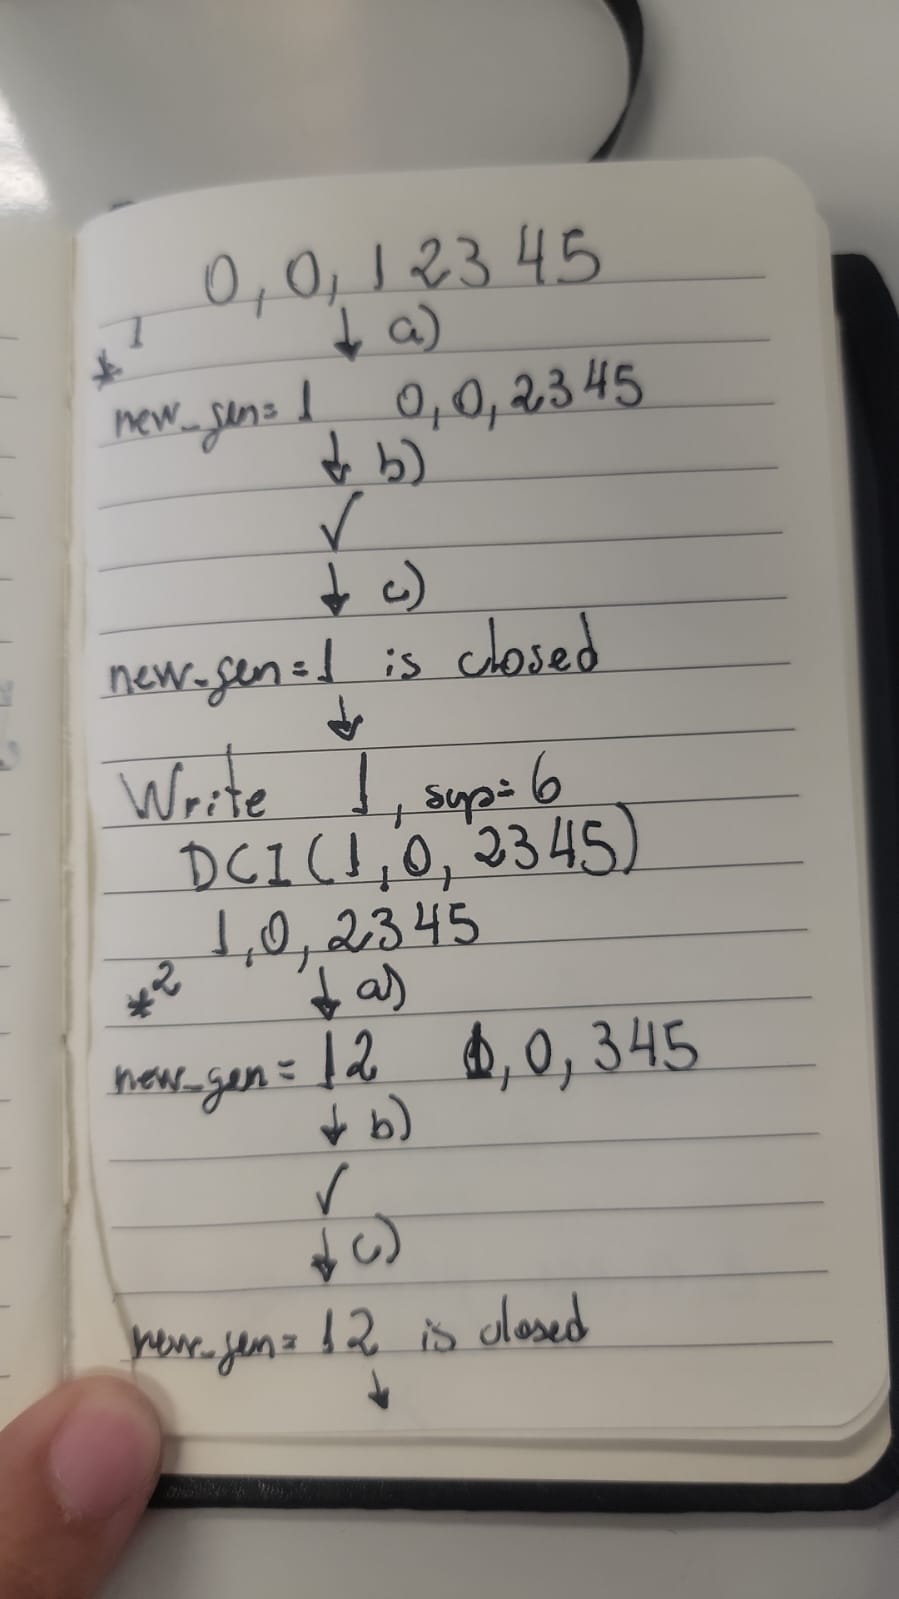 0, 0, 1 2 3 4 5
*1 ↓ a)
new_gen= 1 0, 0, 2 3 4 5
↓ b)
✓
↓ c)
new-gen=1 is closed
↓
Write 1, sup=6
DCI(1, 0, 2345)
1, 0, 2345
*2 ↓ a)
new_gen= 12 1, 0, 345
↓ b)
✓
↓ c)
new-gen= 12 is closed
↓